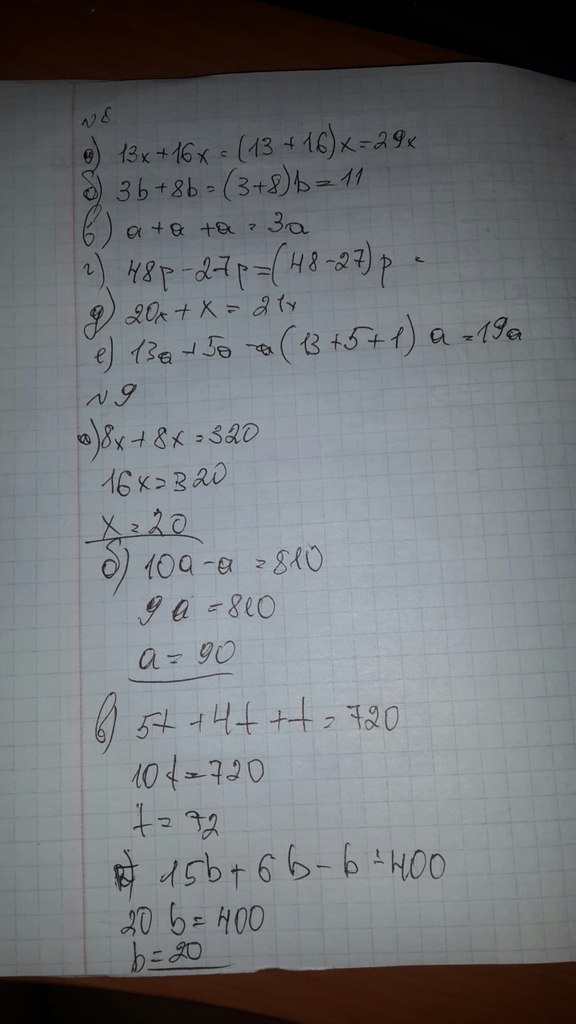 №8
а) 13x+16x=(13+16)x=29x
б) 3b+8b=(3+8)b=11
в) a+a+a=3a
г) 48p-27p=(48-27)p =
д) 20x+x=21x
е) 13a+5a (13+5+1) a=19a
№9
а) 8x+8x=320
16x=320
x=20
б) 10a-a=810
9a=810
a=90
в) 5t+4t+t=720
10t=720
t=72
15b+6b-b=400
20b=400
b=20